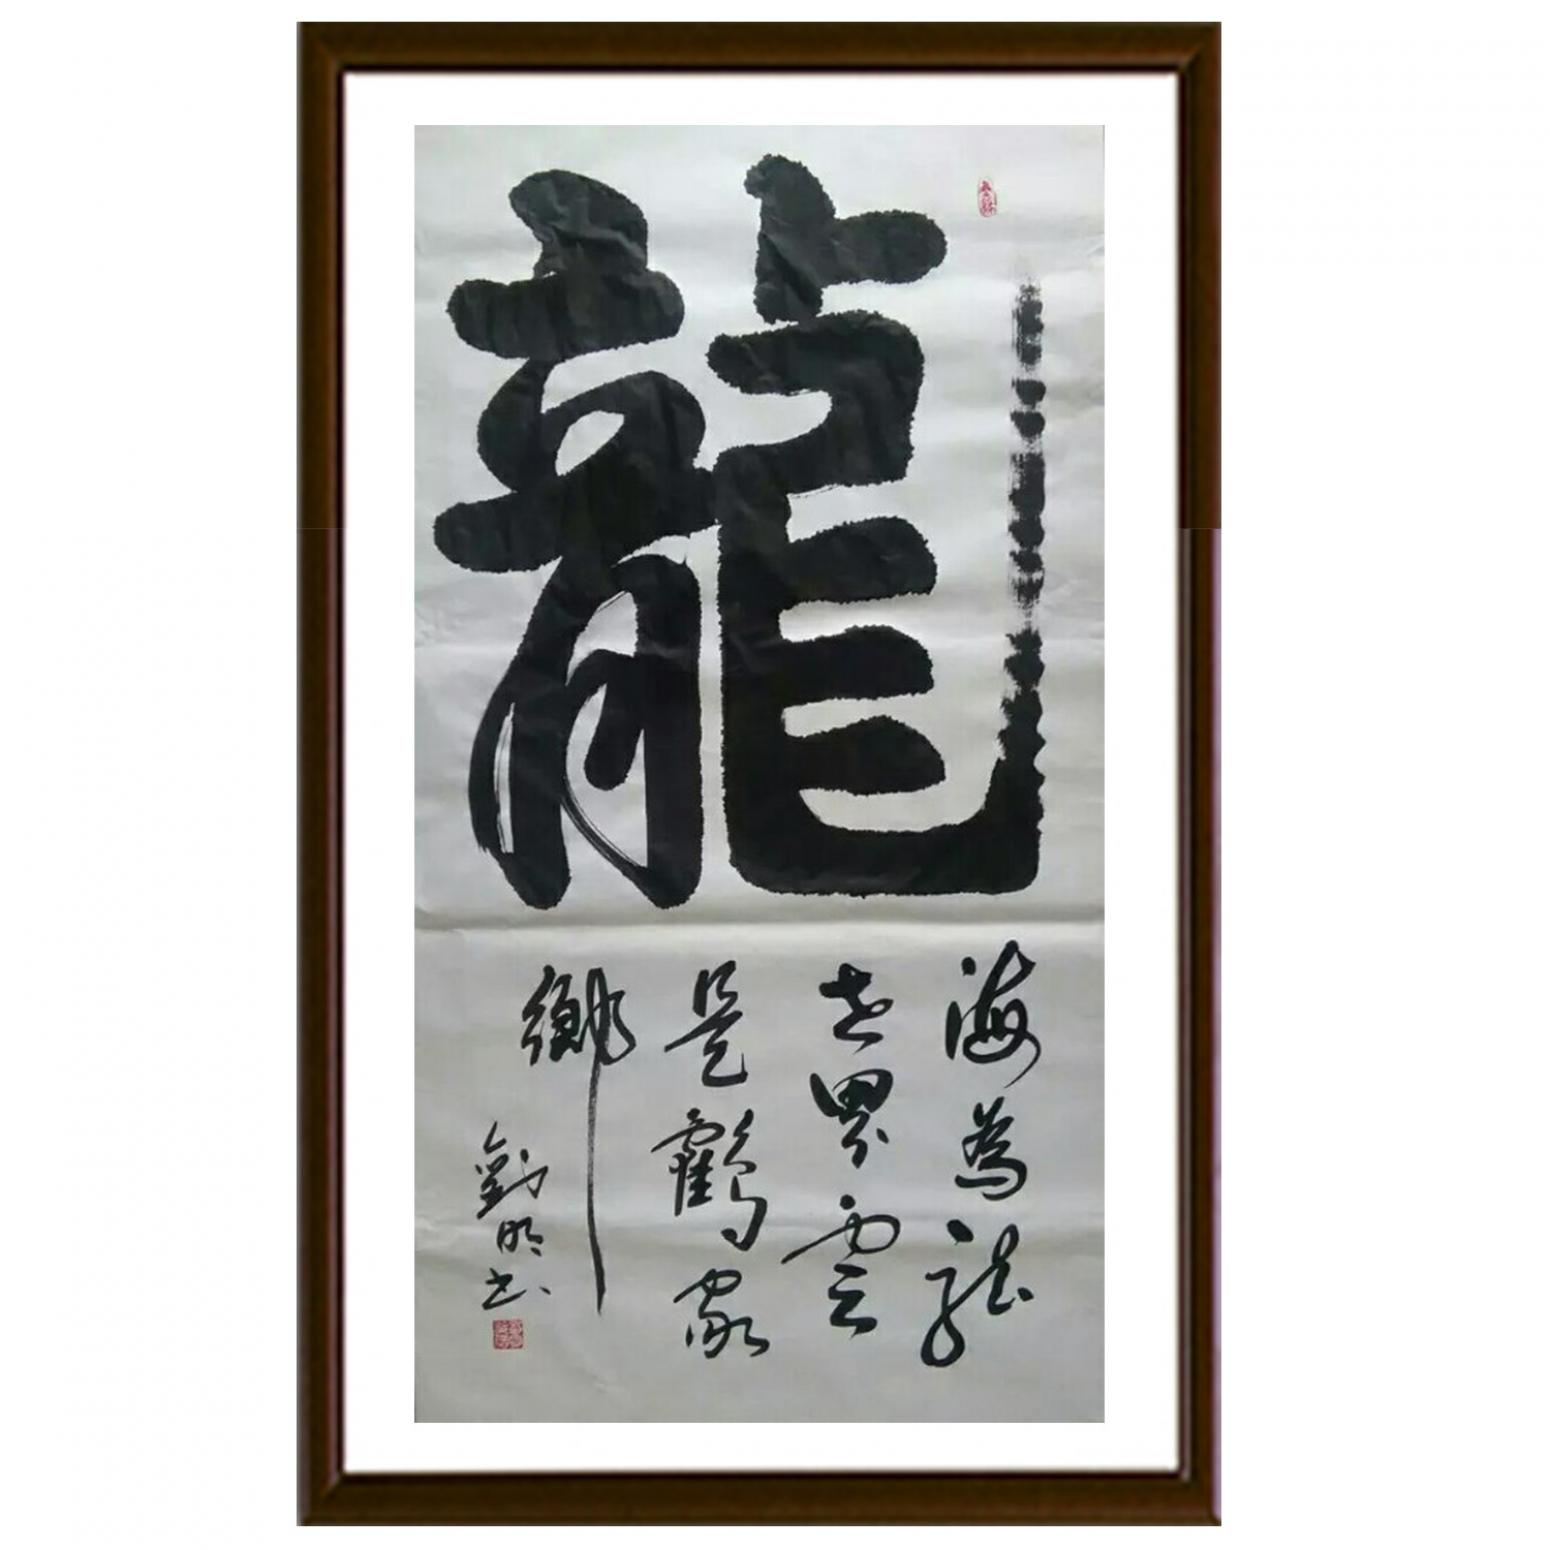 龍
海為龍
世界雲
是鶴家
鄉
劉明书